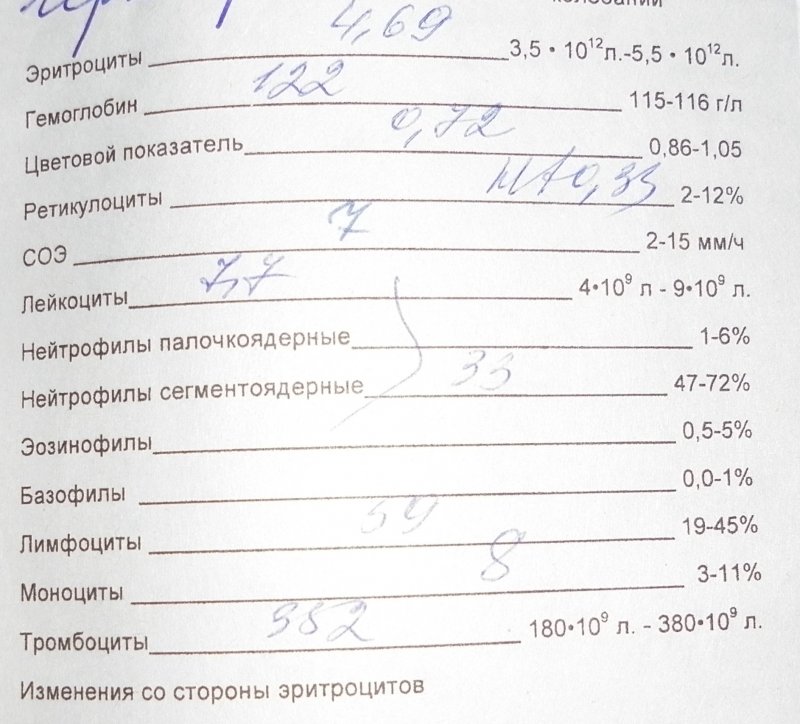 Эритроциты 4,69 3,5 • 10¹²л.-5,5 • 10¹²л.
Гемоглобин 122 115-116 г/л
Цветовой показатель 0,72 0,86-1,05
Ретикулоциты 0,33 2-12%
СОЭ 7 2-15 мм/ч
Лейкоциты 7,7 4•10⁹ л - 9•10⁹ л.
Нейтрофилы палочкоядерные 1-6%
Нейтрофилы сегментоядерные 33 47-72%
Эозинофилы 0,5-5%
Базофилы 0,0-1%
Лимфоциты 59 19-45%
Моноциты 8 3-11%
Тромбоциты 352 180•10⁹ л. - 380•10⁹ л.
Изменения со стороны эритроцитов